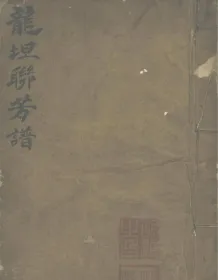 龍坦聯芳譜